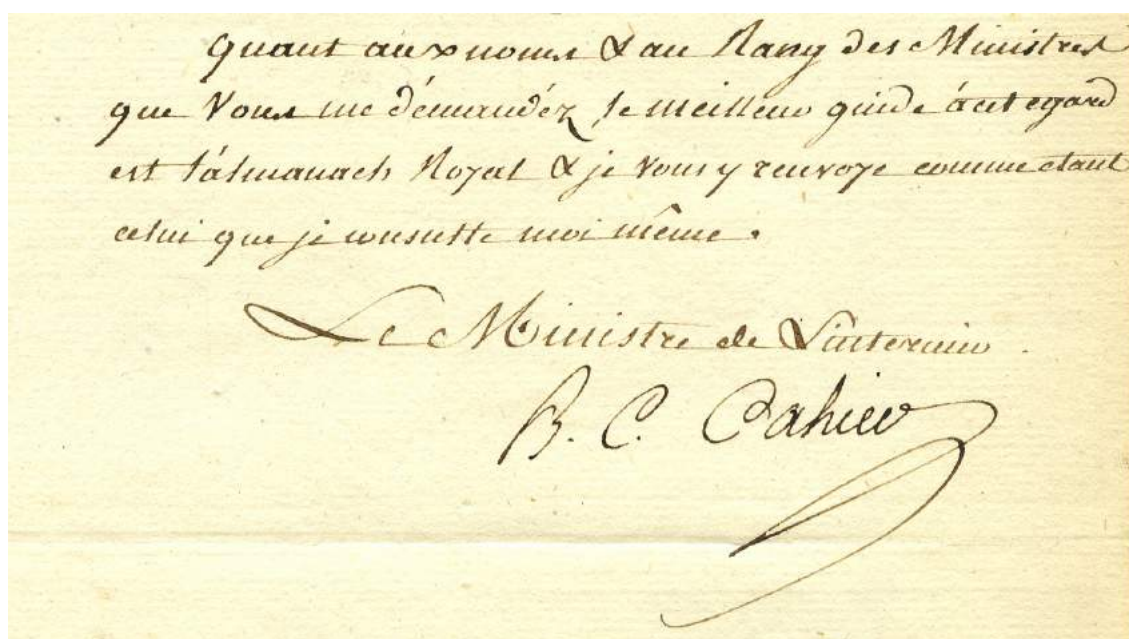 quant aux noms & au Rang des Ministres
que Vous me démandéz le meilleur guide à cet egard
est l'almanach Royal & je vous y renvoye comme etant
celui que je consulte moi même.
Le Ministre de L'interieur
B. C. Cahier